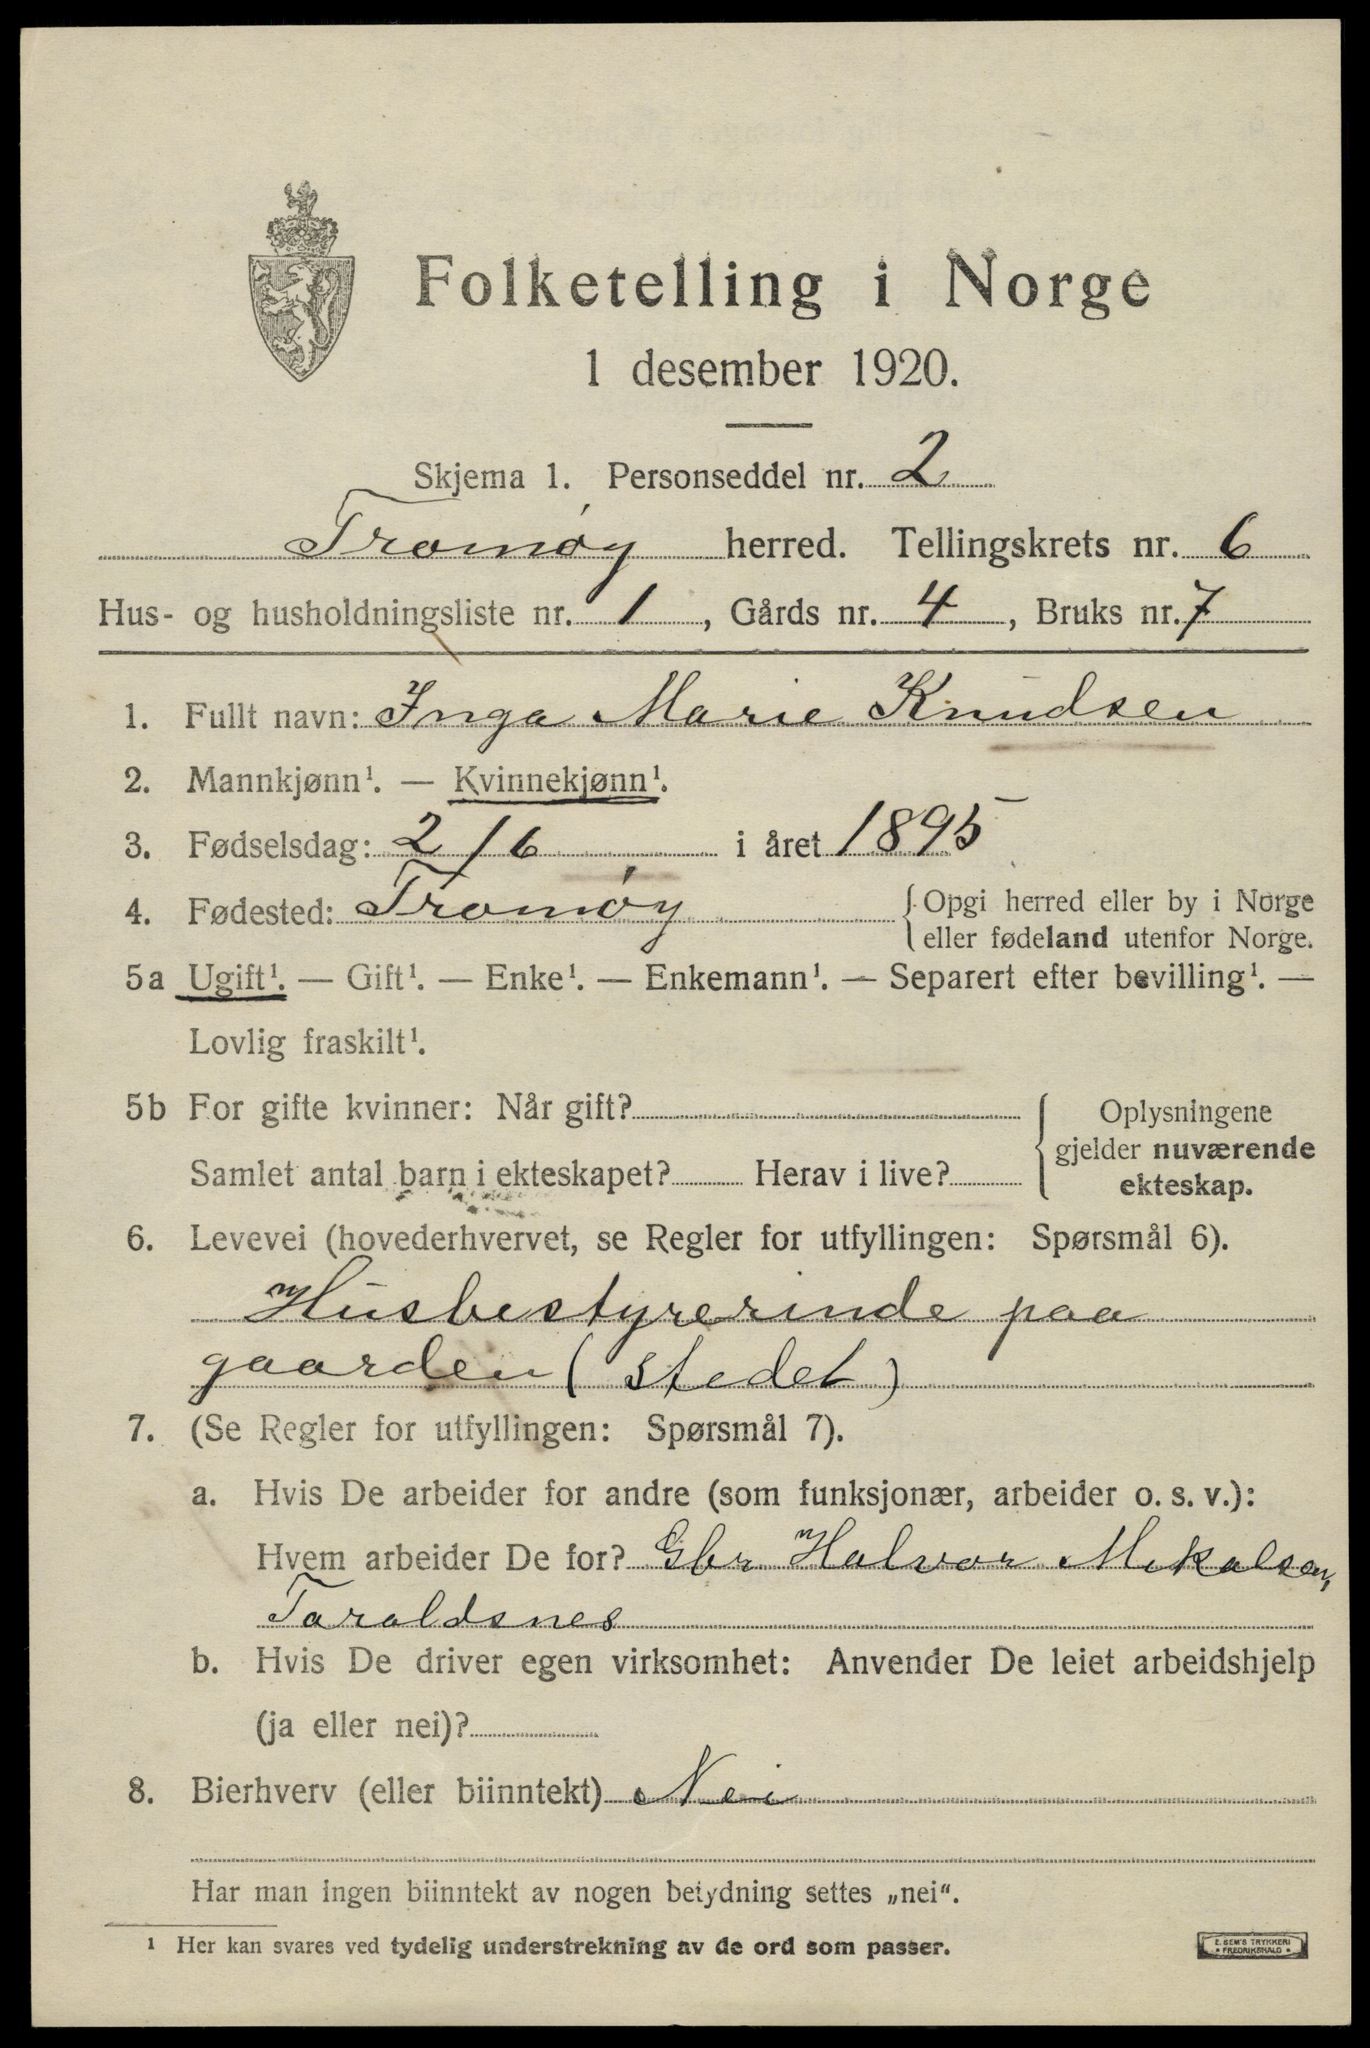 Folketelling i Norge
1 desember 1920.
Skjema 1. Personseddel nr. 2
Tromøy herred. Tellingskrets nr. 6
Hus- og husholdningsliste nr. 1, Gårds nr. 4, Bruks nr. 7
1. Fullt navn: Inga Marie Knudsen
2. Mannkjønn¹. — Kvinnekjønn¹.
3. Fødselsdag: 2/6 i året 1895
4. Fødested: Tromøy {Opgi herred eller by i Norge
eller fødeland utenfor Norge.
5a Ugift¹. — Gift¹. — Enke¹. — Enkemann¹. — Separert efter bevilling¹. —
Lovlig fraskilt¹.
5b For gifte kvinner: Når gift? Oplysningene
gjelder nuværende
Samlet antal barn i ekteskapet? Herav i live? ekteskap.
6. Levevei (hovederhvervet, se Regler for utfyllingen: Spørsmål 6).
Husbestyrerinde paa
gaarden (stedet)
7. (Se Regler for utfyllingen: Spørsmål 7).
a. Hvis De arbeider for andre (som funksjonær, arbeider o. s. v.):
Hvem arbeider De for? Gbr Halvor Mikalsen,
Taraldsnes
b. Hvis De driver egen virksomhet: Anvender De leiet arbeidshjelp
(ja eller nei)?
8. Bierhverv (eller biinntekt) Nei
Har man ingen biinntekt av nogen betydning settes „nei“.
¹ Her kan svares ved tydelig understrekning av de ord som passer.
E. SEM'S TRYKKERI
* FREDRIKSHALD *